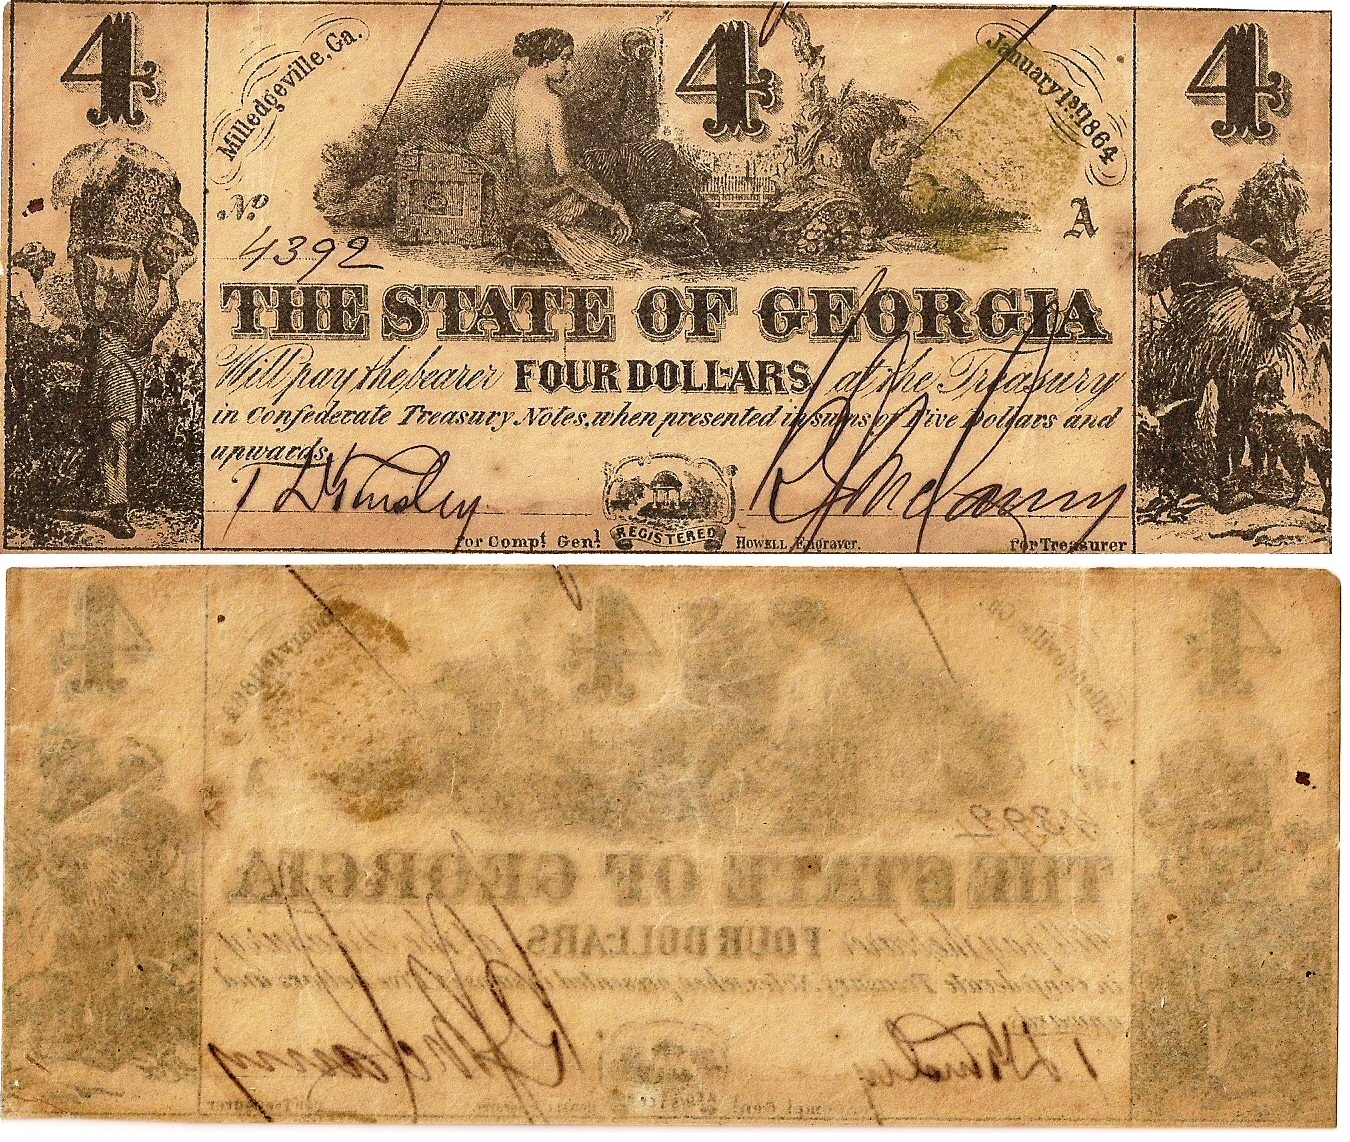 4
Milledgeville, Ga.
4
January 1st 1864
4
No.
4392
A
THE STATE OF GEORGIA
Will pay the bearer FOUR DOLLARS at the Treasury
in Confederate Treasury Notes, when presented in sums of Five Dollars and
upwards.
For Compt. Genl.
REGISTERED
HOWELL Engraver.
For Treasurer